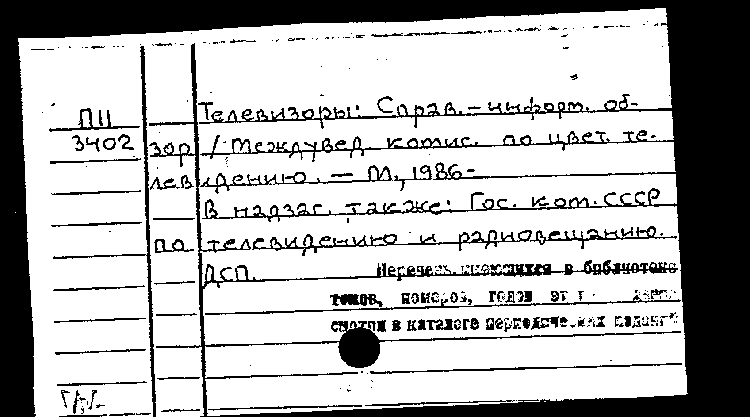 ПII Телевизоры: Справ.-информ. об-
3402 зор / Междувед. комис. по цвет. те-
левидению. — М., 1986 -
В надзаг. также: Гос. ком. СССР
по телевидению и радиовещанию.
ДСП. Перечень имеющихся в библиотеке
томов, номеров, годов
смотри в каталоге периодических изданий